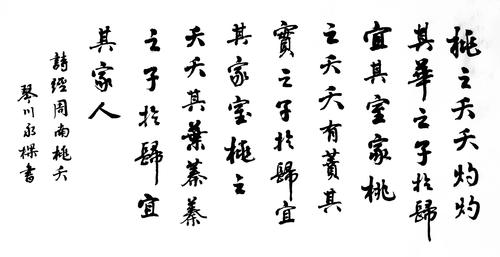 桃之夭夭灼灼
其華之子於歸
宜其室家桃
之夭夭有蕡其
實之子於歸宜
其家室桃之
夭夭其葉蓁蓁
之子於歸宜
其家人
詩經周南桃夭
琴川永樑書